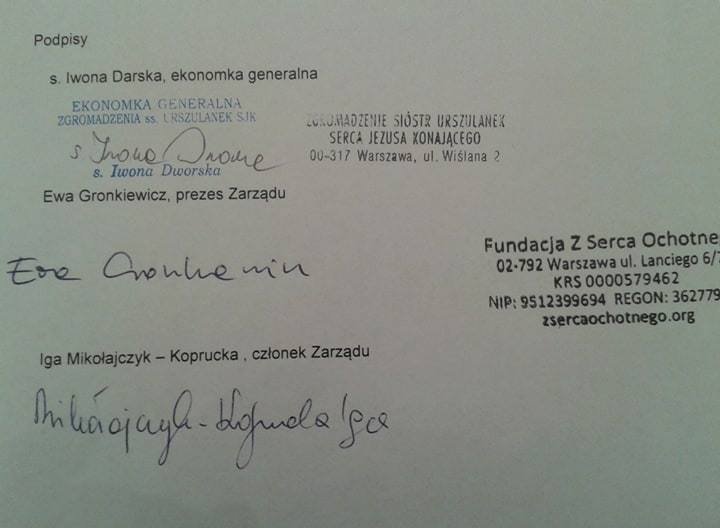 Podpisy
s. Iwona Darska, ekonomka generalna
EKONOMKA GENERALNA
ZGROMADZENIA ss. URSZULANEK SJK
s. Iwona
s. Iwona Dworska
ZGROMADZENIE SIÓSTR URSZULANEK
SERCA JEZUSA KONAJĄCEGO
00-317 Warszawa, ul. Wiślana 2
Ewa Gronkiewicz, prezes Zarządu
Ewa Gronkiewicz
Fundacja Z Serca Ochotne
02-792 Warszawa ul. Lanciego 6/7
KRS 0000579462
NIP: 9512399694 REGON: 362779
zsercaochotnego.org
Iga Mikołajczyk – Koprucka , członek Zarządu
Mikołajczyk-Koprucka Iga